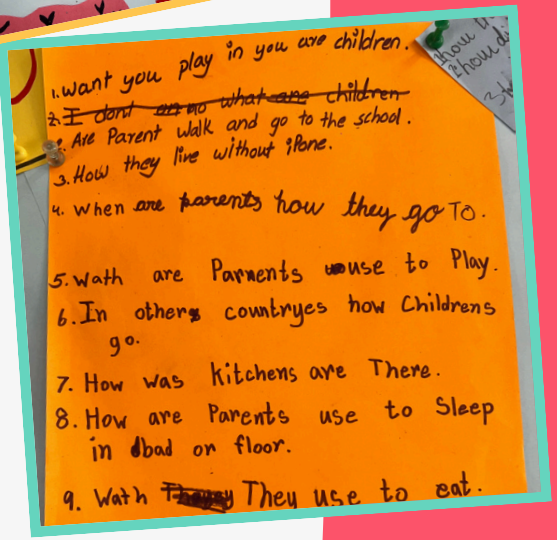 1. want you play in you are children.
2. I dont an no what are children
Are Parent walk and go to the school.
3. How they live without iPone.
4. When are parents how they go TO.
5. Wath are Parments use to Play.
6. In others countryes how Childrens
go.
7. How was kitchens are There.
8. How are Parents use to Sleep
in bad or floor.
9. Wath They use to eat.
1 how
2 how di
3